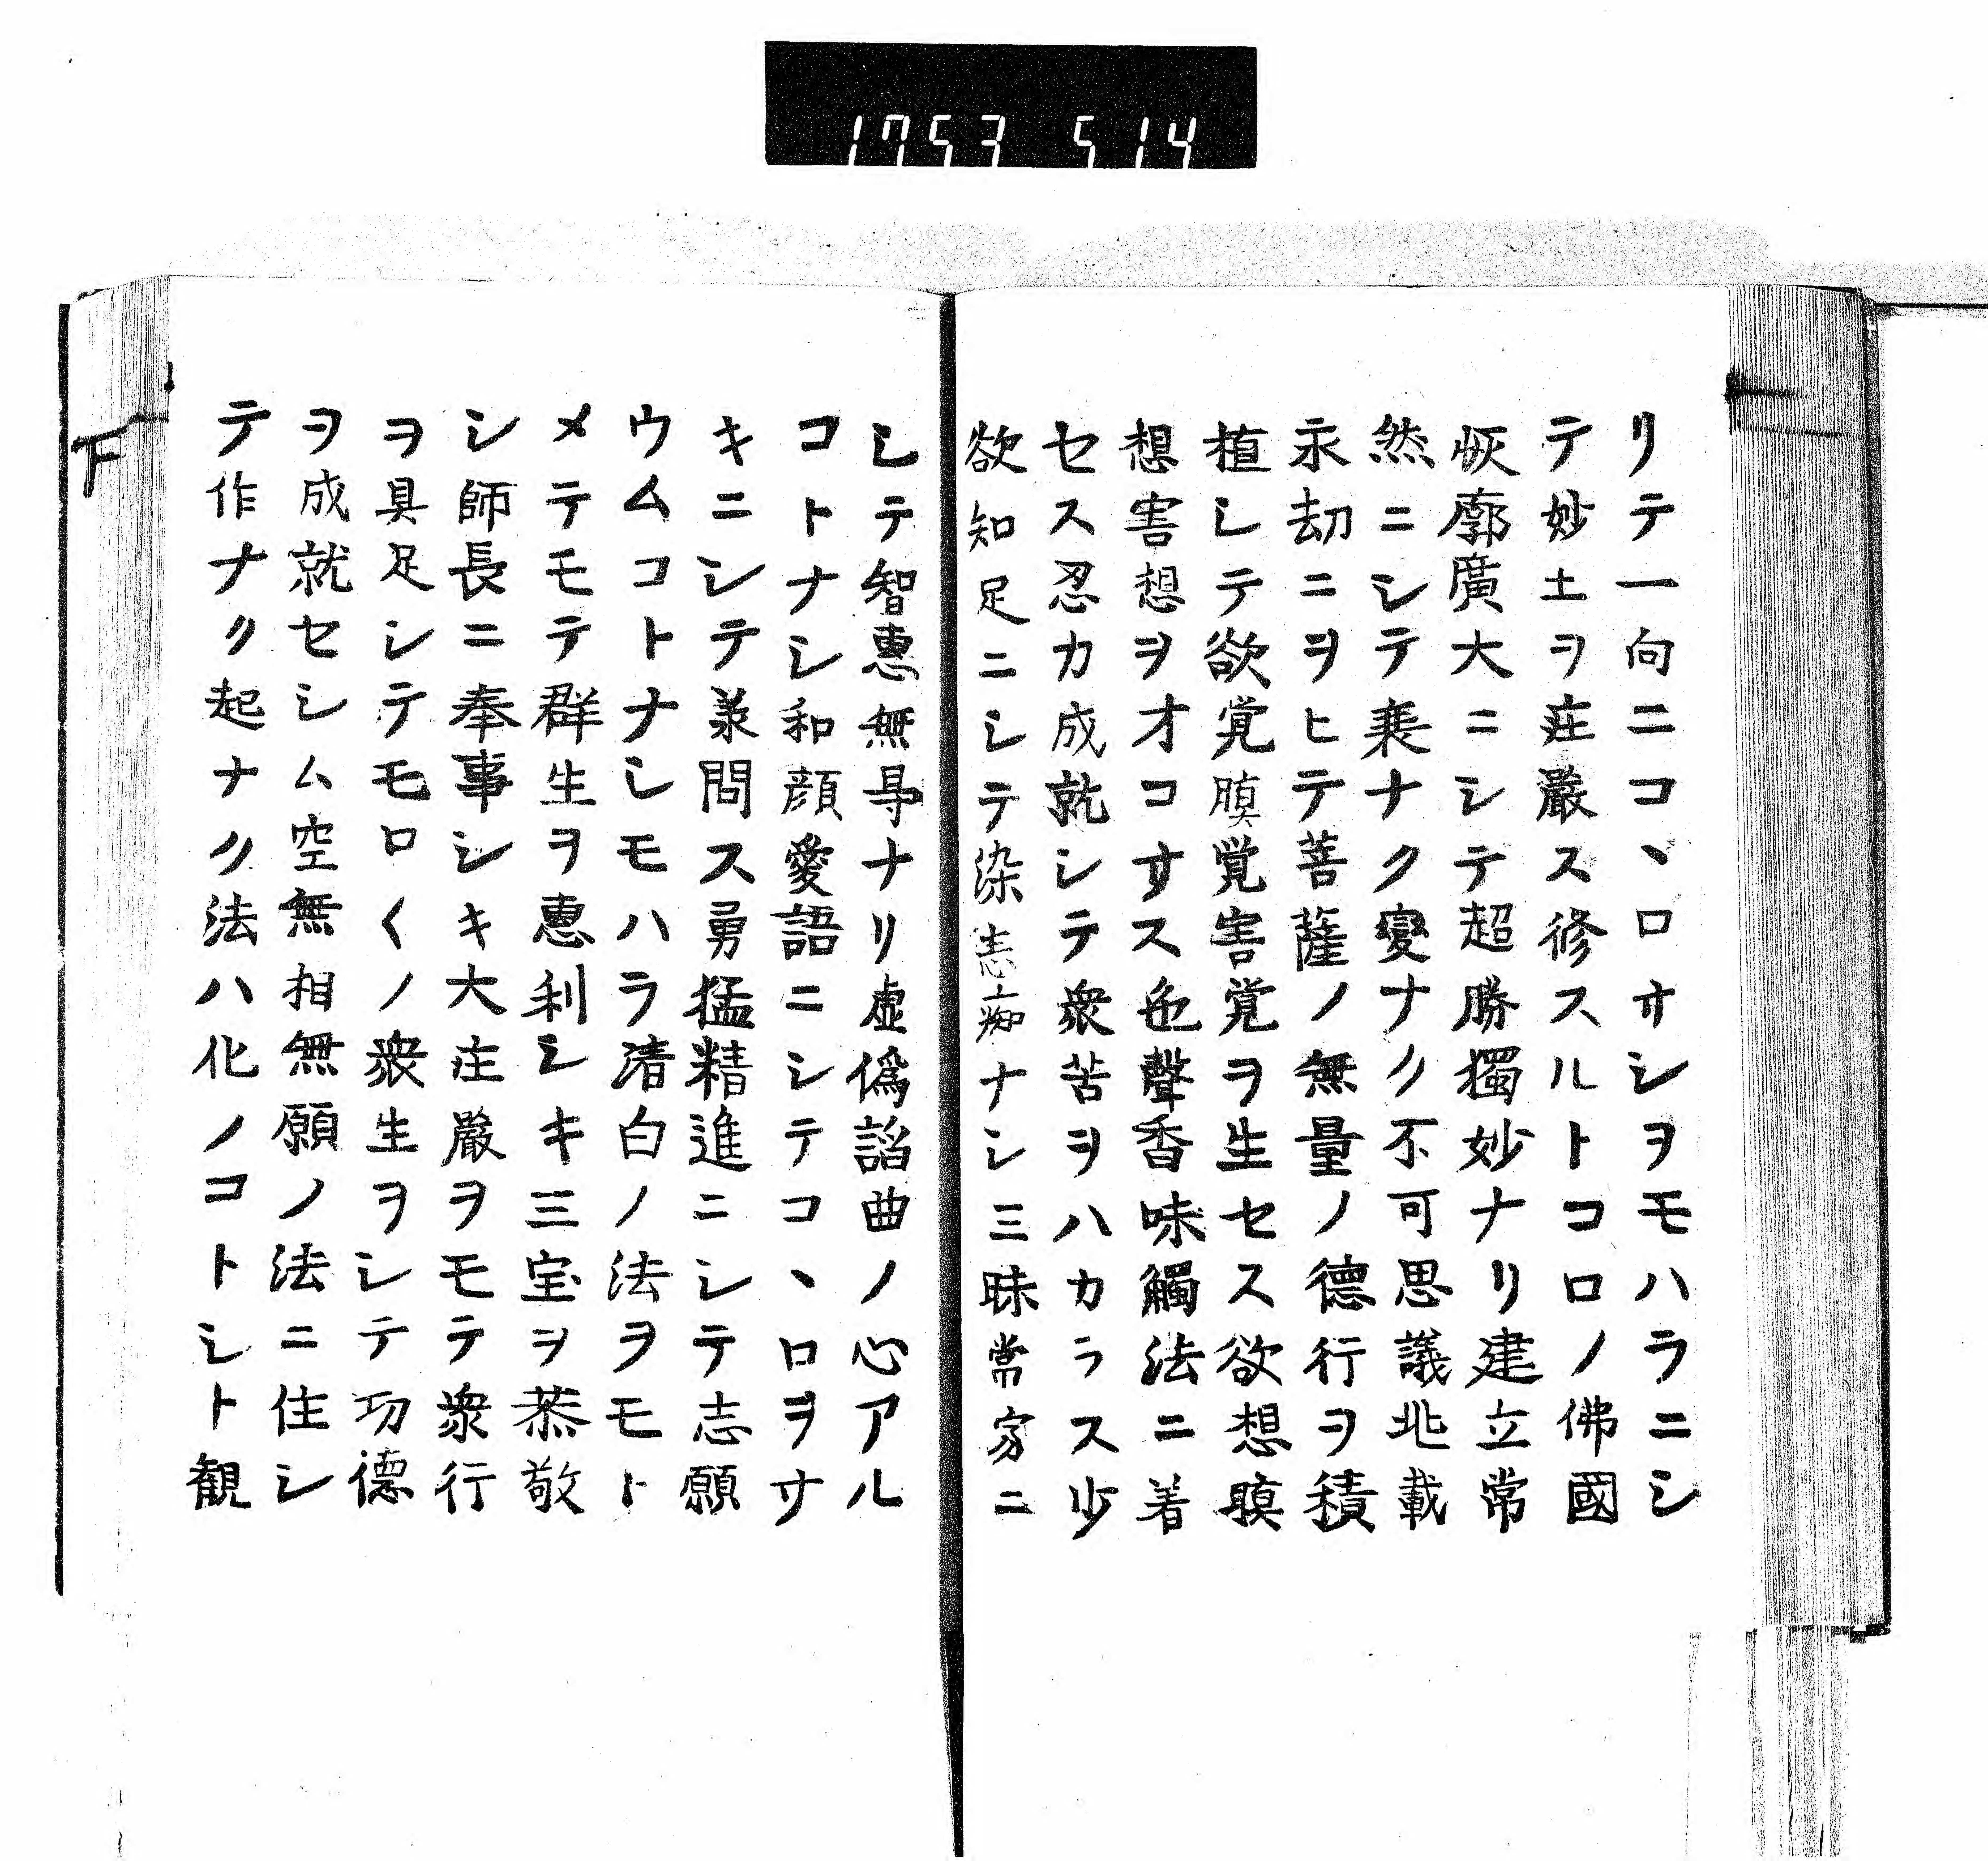 1753 514
リテ一向ニコヽロサシヲモハラニシ
テ妙土ヲ庄嚴ス修スルトコロノ佛國
恢廓廣大ニシテ超勝獨妙ナリ建立常
然ニシテ衰ナク變ナク不可思議兆載
永劫ニヲヒテ菩薩ノ無量ノ德行ヲ積
植シテ欲覚瞋覚害覚ヲ生セス欲想瞋
想害想ヲオコサス色聲香味觸法ニ着
セス忍力成就シテ衆苦ヲハカラス少
欲知足ニシテ染恚癡ナシ三昧常寂ニ
シテ智惠無㝵ナリ虚僞諂曲ノ心アル
コトナシ和顔愛語ニシテコヽロヲサ
キニシテ承問ス勇猛精進ニシテ志願
ウムコトナシモハラ清白ノ法ヲモト
メテモテ群生ヲ惠利シキ三宝ヲ恭敬
シ師長ニ奉事シキ大庄嚴ヲモテ衆行
ヲ具足シテモロ〱ノ衆生ヲシテ功德
ヲ成就セシム空無相無願ノ法ニ住シ
テ作ナク起ナク法ハ化ノコトシト観
下